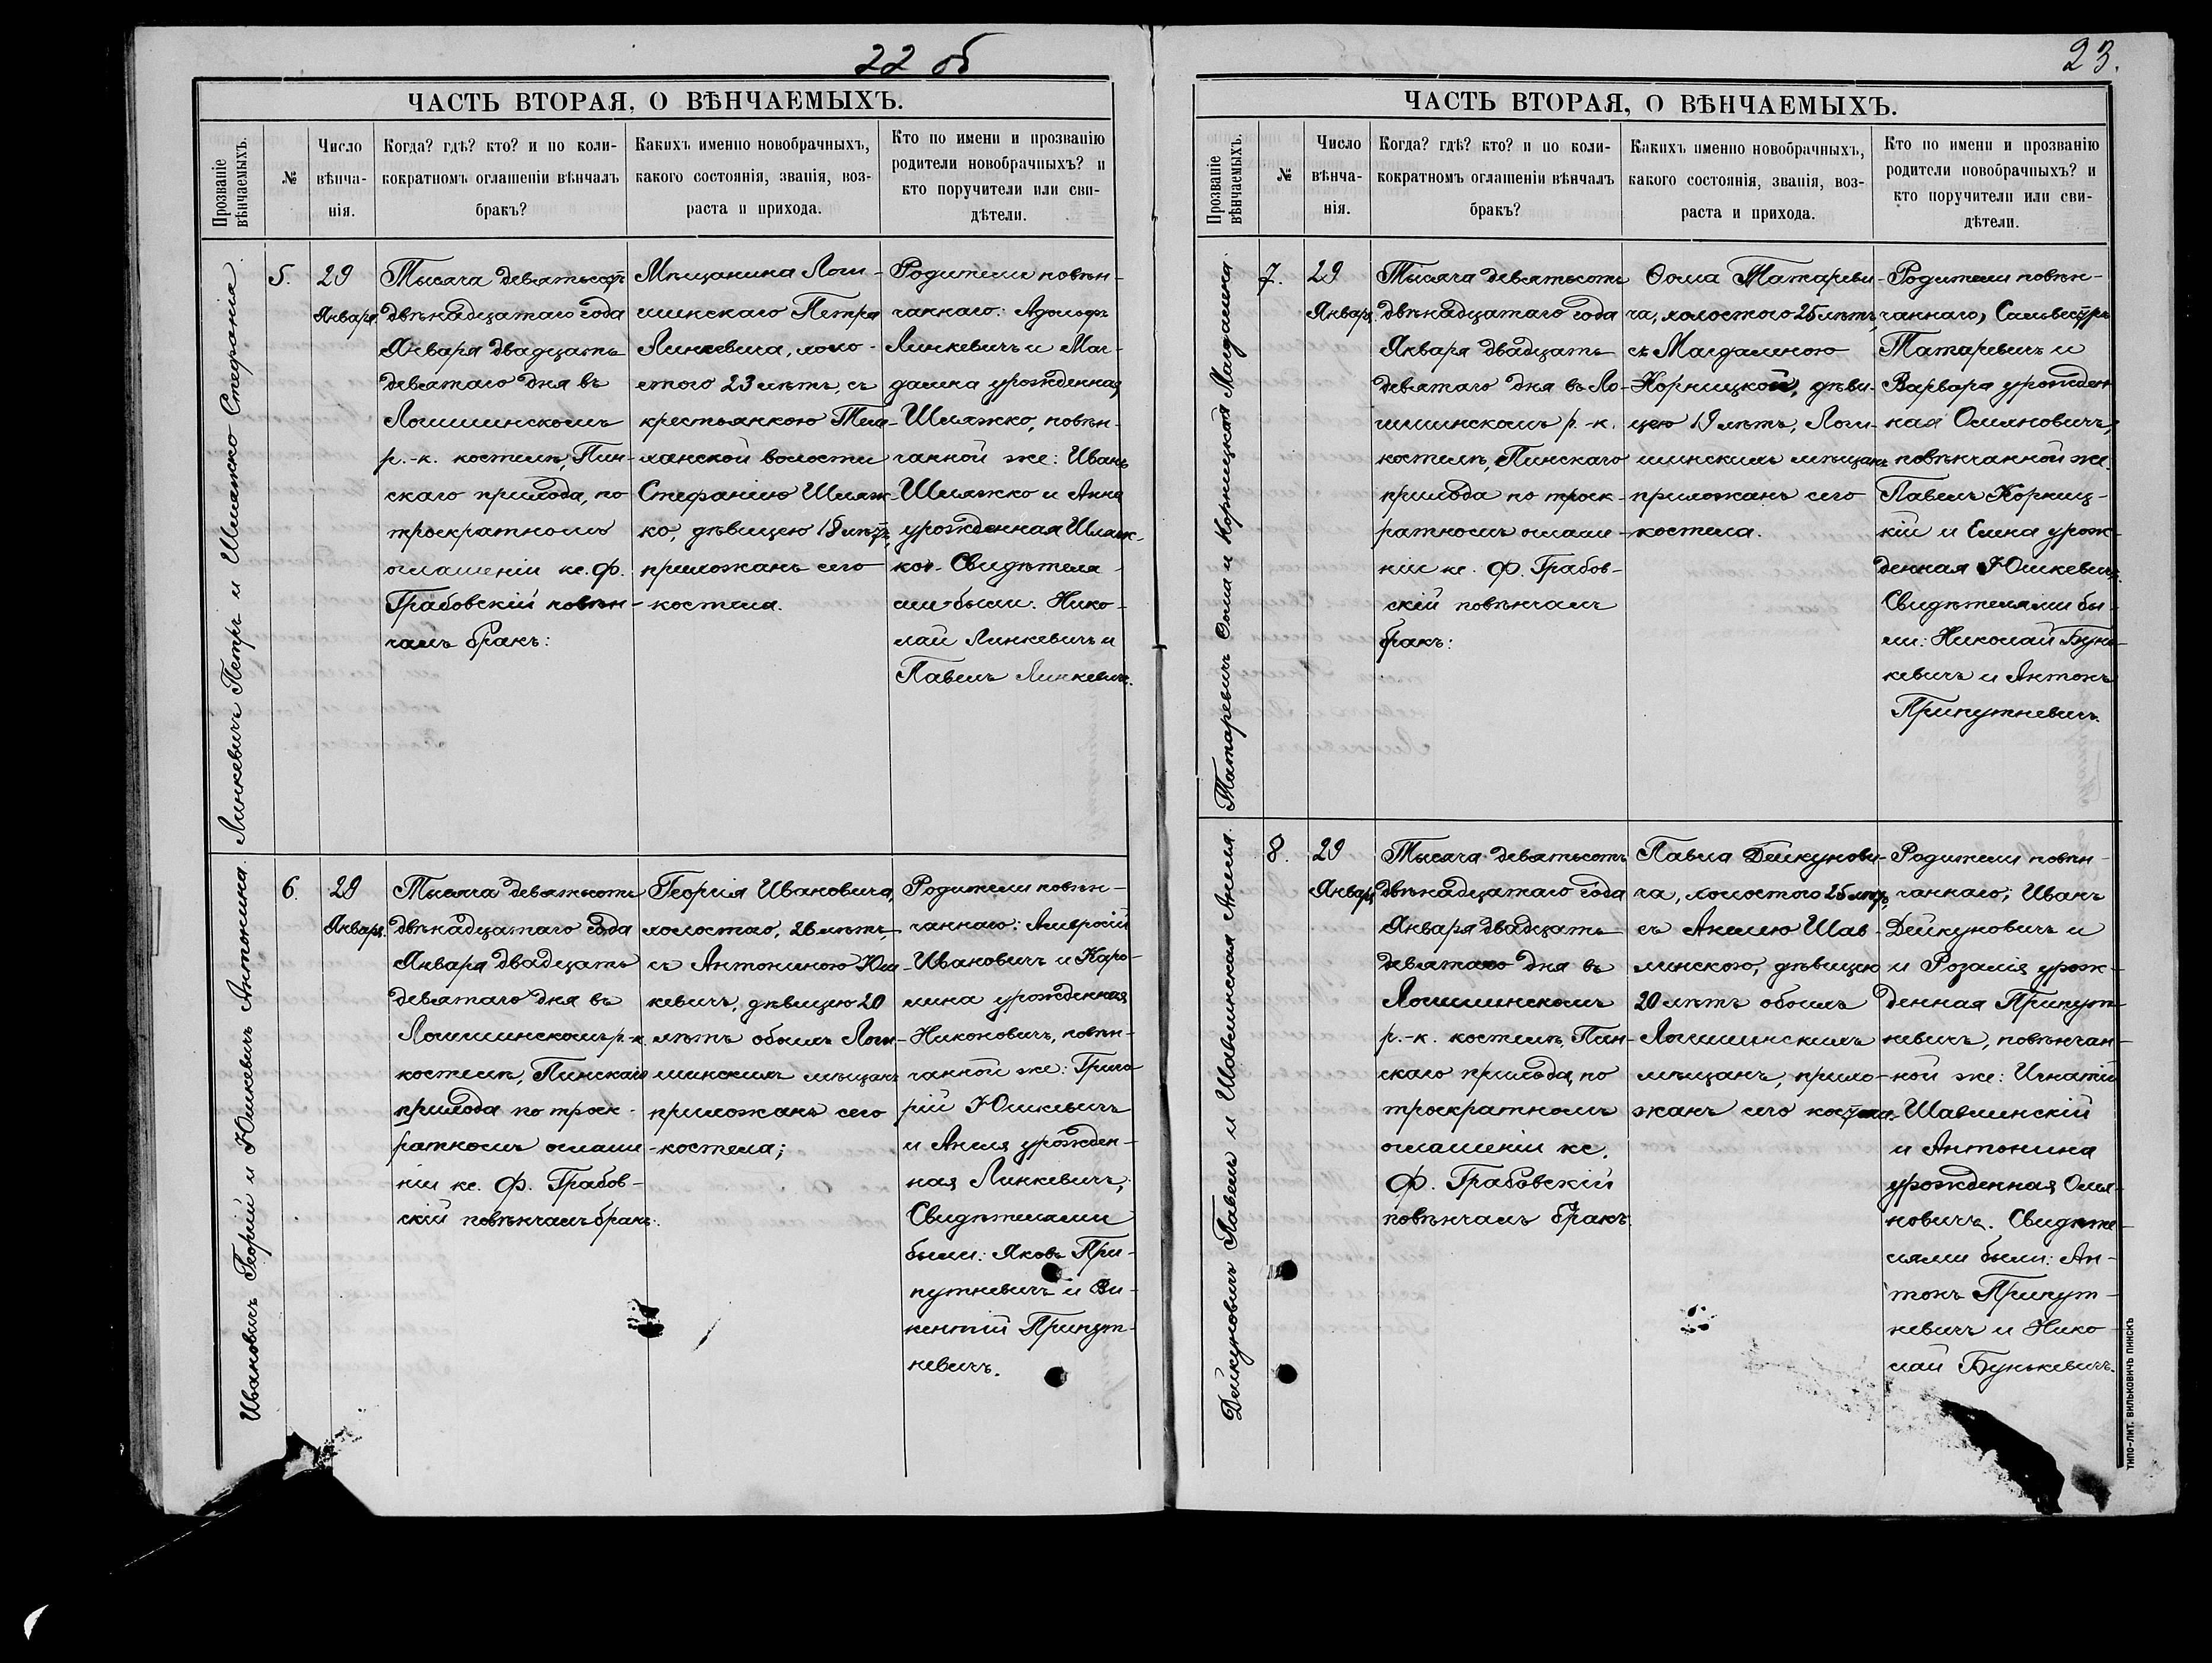 22 об
ЧАСТЬ ВТОРАЯ, О ВѢНЧАЕМЫХЪ.
Прозваніе
вѣнчаемыхъ.
№
Число
вѣнча-
нія.
Когда? гдѣ? кто? и по коли-
кократномъ оглашеніи вѣнчалъ
бракъ?
Какихъ именно новобрачныхъ,
какого состоянія, званія, воз-
раста и прихода.
Кто по имени и прозванію
родители новобрачныхъ? и
кто поручители или сви-
дѣтели.
Линкевичъ Петръ и Шляжко Стефанія
5.
29
Января
Тысяча девятьсотъ
двѣнадцатаго года
Января двадцать
девятаго дня въ
Логишинскомъ
р.-к. костелѣ, Пин-
скаго прихода, по
троекратномъ
оглашеніи кс. Ф.
Грабовскій повѣн-
чалъ бракъ:
Мѣщанина Логи-
шинскаго Петра
Линкевича, холо-
стого 23 лѣтъ, съ
крестьянкою Теле-
ханской волости
Стефаніею Шляж-
ко, дѣвицею 18 лѣтъ,
прихожанъ сего
костела.
Родители повѣн-
чаннаго: Адольфъ
Линкевичъ и Маг-
далина урожденная
Шляжко, повѣн-
чанной же: Иванъ
Шляжко и Анна
урожденная Шляж-
ко. Свидѣтеля-
ми были: Нико-
лай Линкевичъ и
Павелъ Линкевичъ.
Ивановичъ Георгій и Юшкевичъ Антонина.
6.
29
Января.
Тысяча девятьсотъ
двѣнадцатаго года
Января двадцать
девятаго дня въ
Логишинскомъ р.-к.
костелѣ, Пинскаго
прихода по троек-
ратномъ оглаше-
ніи кс. Ф. Грабов-
скій повѣнчалъ бракъ:
Георгія Ивановича,
холостаго, 26 лѣтъ,
съ Антониною Юш-
кевичъ, дѣвицею 20
лѣтъ обоихъ Логи-
шинскихъ мѣщанъ
прихожанъ сего
костела;
Родители повѣн-
чаннаго: Амвросій
Ивановичъ и Каро-
лина урожденная
Никоновичъ, повѣн-
чанной же: Григо-
рій Юшкевичъ
и Анеля урожден-
ная Линкевичъ,
Свидѣтелями
были: Яковъ При-
путневичъ и Ви-
кентій Припут-
невичъ.
23.
ЧАСТЬ ВТОРАЯ, О ВѢНЧАЕМЫХЪ.
Прозваніе
вѣнчаемыхъ.
№
Число
вѣнча-
нія.
Когда? гдѣ? кто? и по коли-
кократномъ оглашеніи вѣнчалъ
бракъ?
Какихъ именно новобрачныхъ,
какого состоянія, званія, воз-
раста и прихода.
Кто по имени и прозванію
родители новобрачныхъ? и
кто поручители или сви-
дѣтели.
Татаревичъ Ѳома и Корницкая Магдалина.
7.
29
Января.
Тысяча девятьсотъ
двѣнадцатаго года
Января двадцать
девятаго дня въ Ло-
гишинскомъ р.-к.
костелѣ, Пинскаго
прихода по троек-
ратномъ оглаше-
ніи кс. Ф. Грабов-
скій повѣнчалъ
бракъ:
Ѳома Татареви-
ча, холостого 25 лѣтъ,
съ Магдалиною
Корницкой, дѣви-
цею 19 лѣтъ, Логи-
шинскихъ мѣщанъ
прихожанъ сего
костела.
Родители повѣн-
чаннаго, Сильвестръ
Татаревичъ и
Варвара урожден-
ная Омляновичъ,
повѣнчанной же
Павелъ Корниц-
кій и Елена урож-
денная Юшкевичъ.
Свидѣтелями бы-
ли: Николай Бунь-
кевичъ и Антонъ
Припутневичъ.
Дейкуновичъ Павелъ и Шавлинская Анеля.
8.
29
Января
Тысяча девятьсотъ
двѣнадцатаго года
Января двадцать
девятаго дня въ
Логишинскомъ
р.-к. костелѣ, Пин-
скаго прихода, по
троекратномъ
оглашеніи кс.
Ф. Грабовскій
повѣнчалъ бракъ
Павла Дейкунови-
ча, холостого 25 лѣтъ,
съ Анелею Шав-
линскою, дѣвицею
20 лѣтъ обоихъ
Логишинскихъ
мѣщанъ, прихо-
жанъ сего костела.
Родители повѣн-
чаннаго; Иванъ
Дейкуновичъ и
и Розалія урож-
денная Припут-
невичъ, повѣнчан-
ной же: Игнатій
Шавлинскій
и Антонина
урожденная Омля-
новичъ. Свидѣте-
лями были: Ан-
тонъ Припут-
невичъ и Нико-
лай Бунькевичъ.
ТИПО-ЛИТ. ВИЛЬКОВИЧЪ ПИНСКЪ